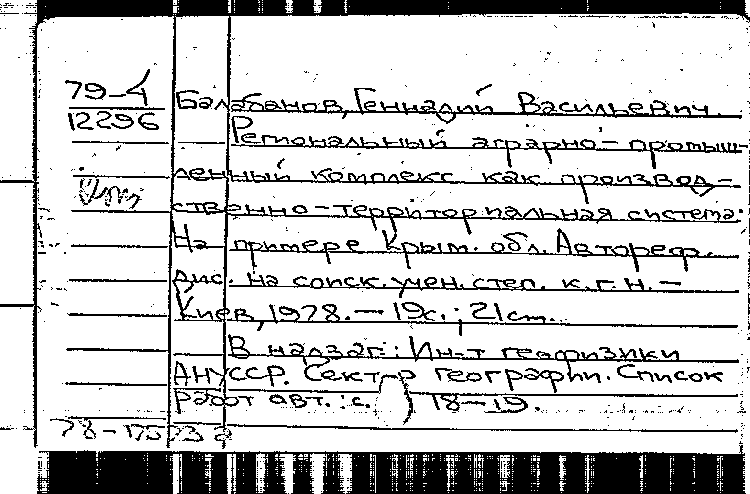 79-4
12296
Балабанов, Геннадий Васильевич.
Региональный аграрно-промыш-
ленный комплекс как производ-
ственно-территориальная система:
На примере Крым. обл. Автореф.
дис. на соиск. учен. степ. к.г.н. —
Киев, 1978. — 19с.; 21 ст.
В надзаг.: Ин-т геофизики
АН УССР. Сектор географии. Список
работ авт.: с. 18-19.